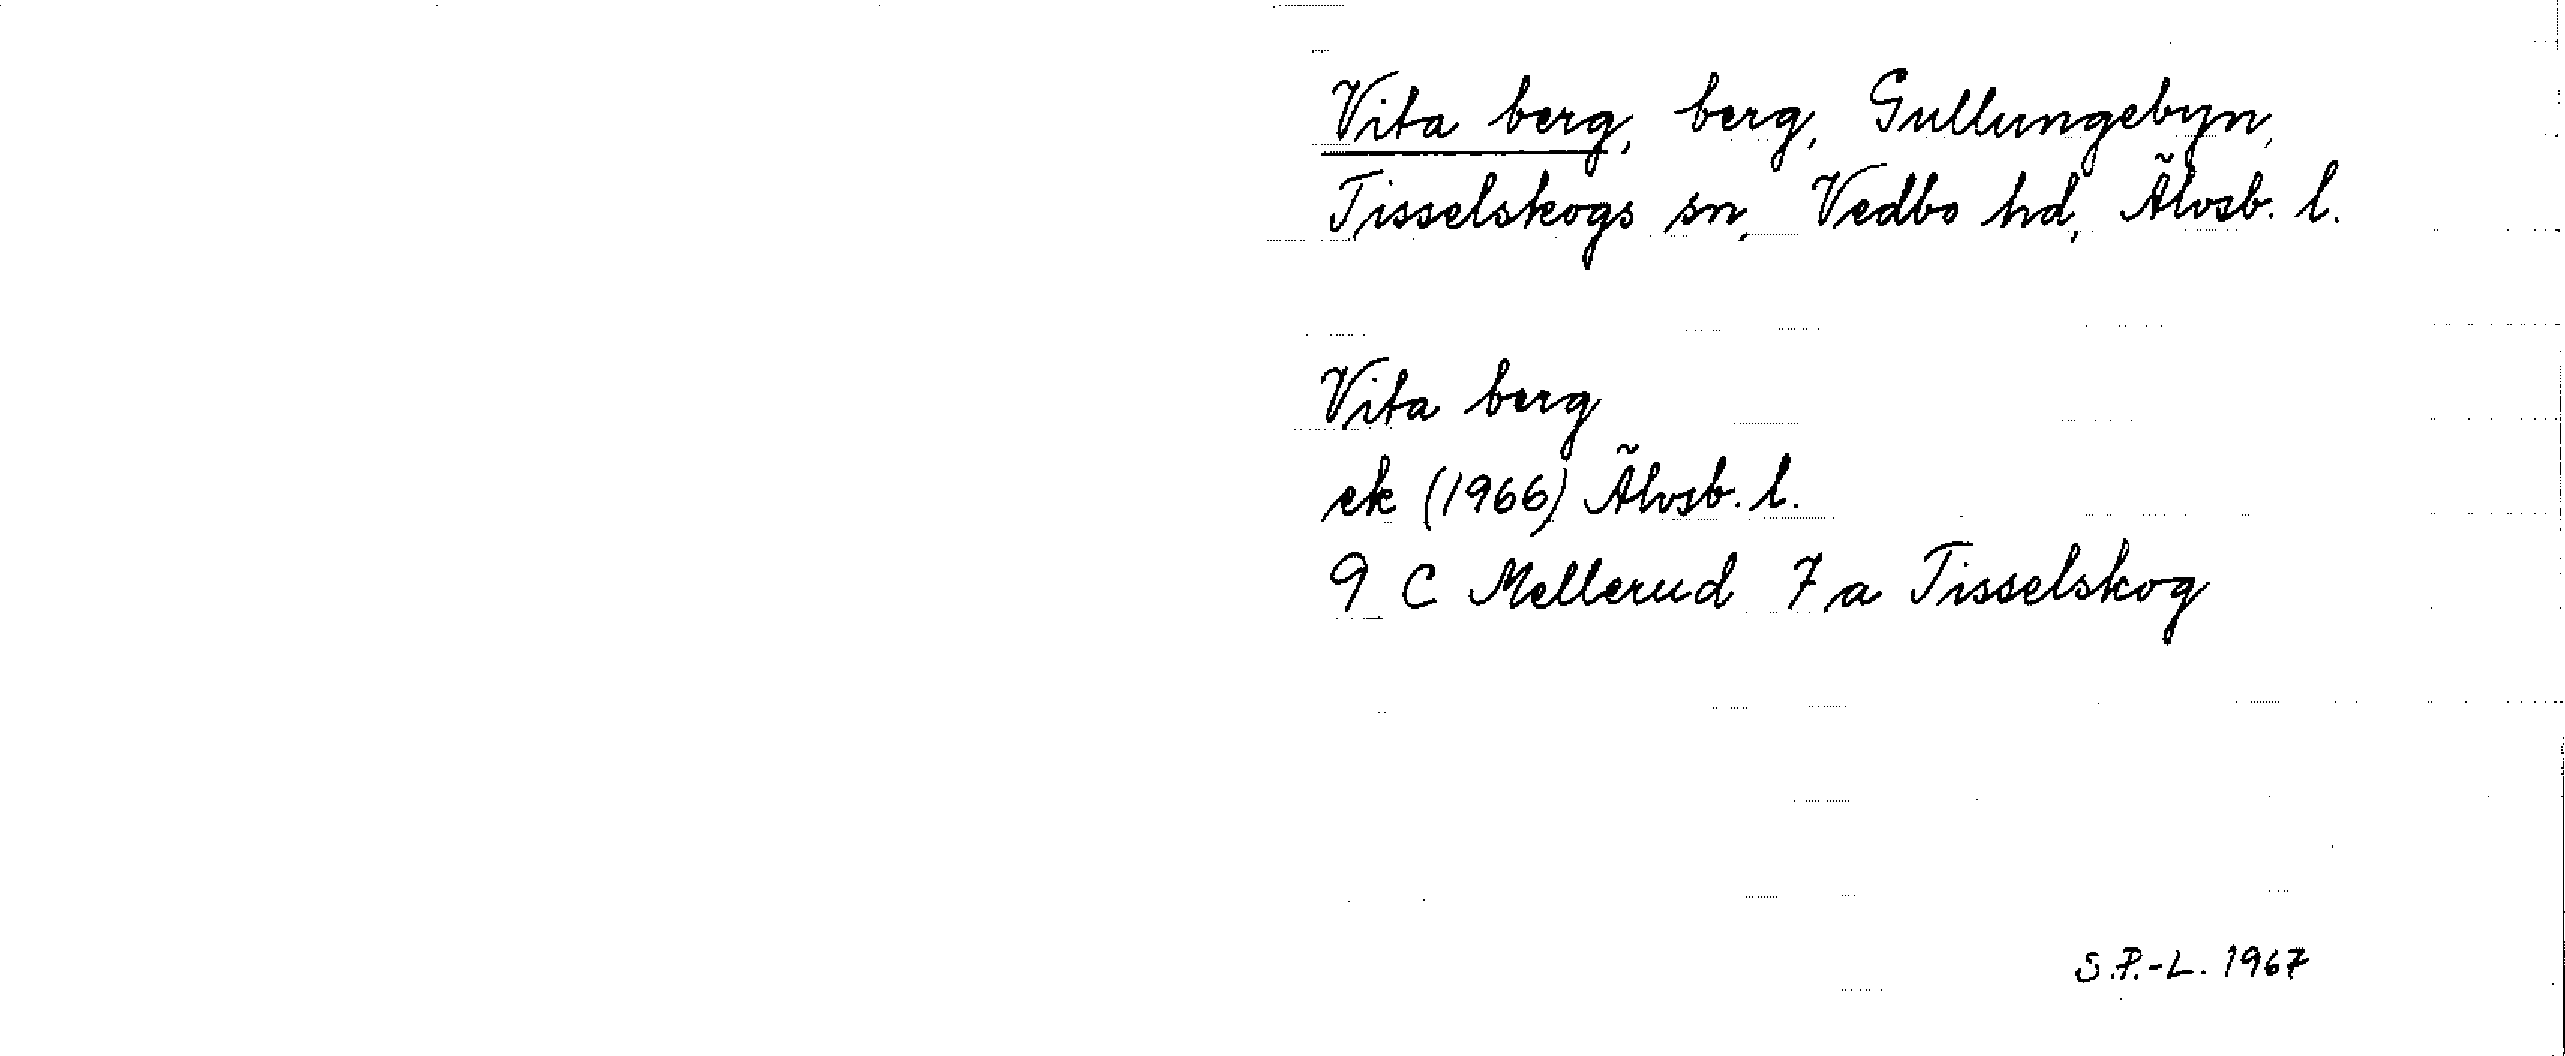 Vita berg, berg, Gullungebyn,
Tisselskogs sn, Vedbo hd, Älvsb. l.
Vita berg
ek (1966) Älvsb. l.
9 C Mellerud 7 a Tisselskog
S.P.-L. 1967